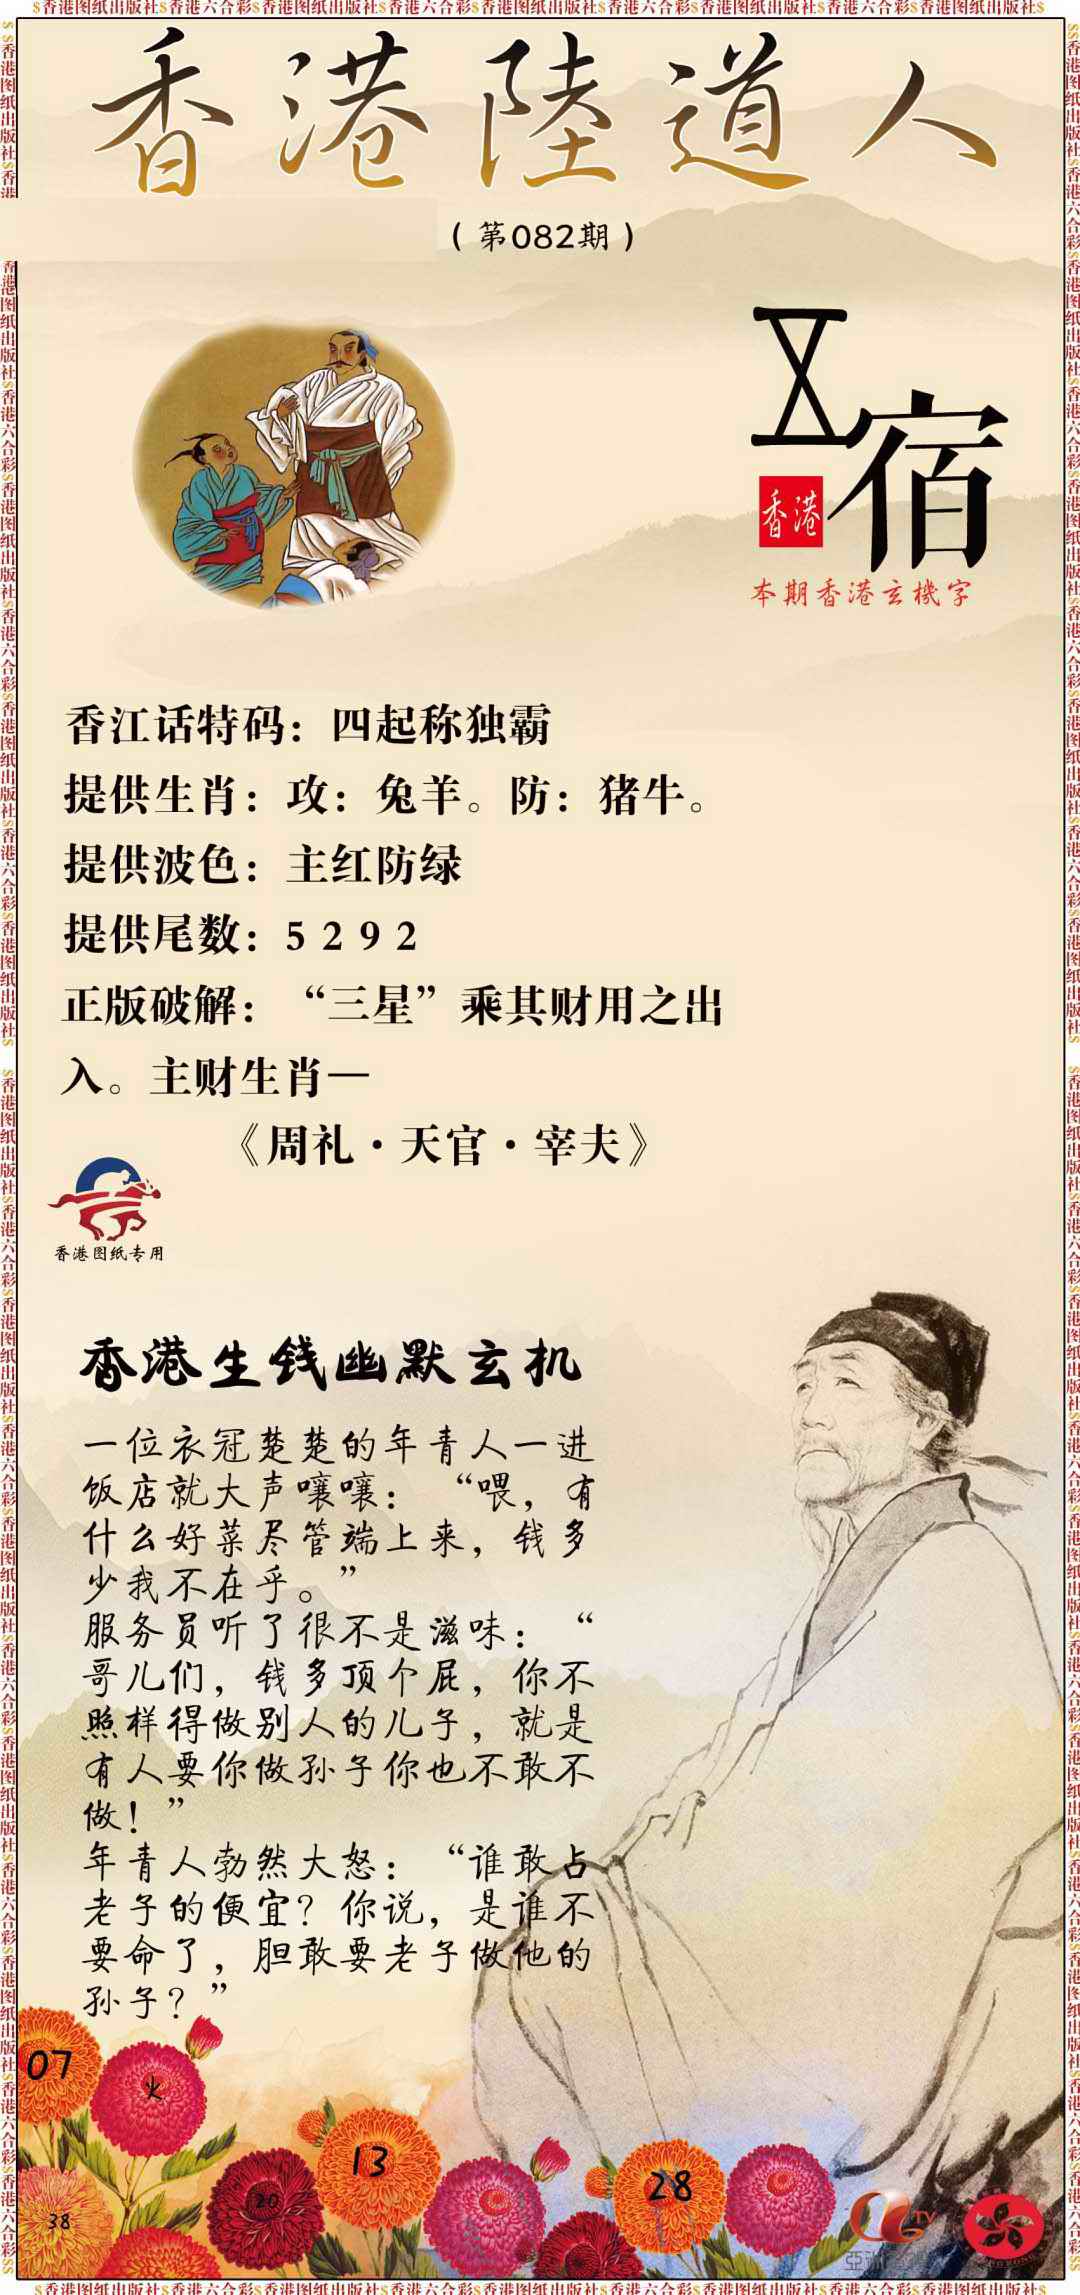 $香港图纸出版社$香港六合彩$香港图纸出版社$香港六合彩$香港图纸出版社$香港六合彩$香港图纸出版社$香港六合彩$香港图纸出版社$
香港陸道人
（第082期）
宿
香港
本期香港玄機字
香江话特码：四起称独霸
提供生肖：攻：兔羊。防：猪牛。
提供波色：主红防绿
提供尾数：5 2 9 2
正版破解：“三星”乘其财用之出
入。主财生肖—
《周礼·天官·宰夫》
香港图纸专用
香港生钱幽默玄机
一位衣冠楚楚的年青人一进
饭店就大声嚷嚷：“喂，有
什么好菜尽管端上来，钱多
少我不在乎。”
服务员听了很不是滋味：“
哥儿们，钱多顶个屁，你不
照样得做别人的儿子，就是
有人要你做孙子你也不敢不
做！”
年青人勃然大怒：“谁敢占
老子的便宜？你说，是谁不
要命了，胆敢要老子做他的
孙子？”
07
火
13
28
20
38
TV